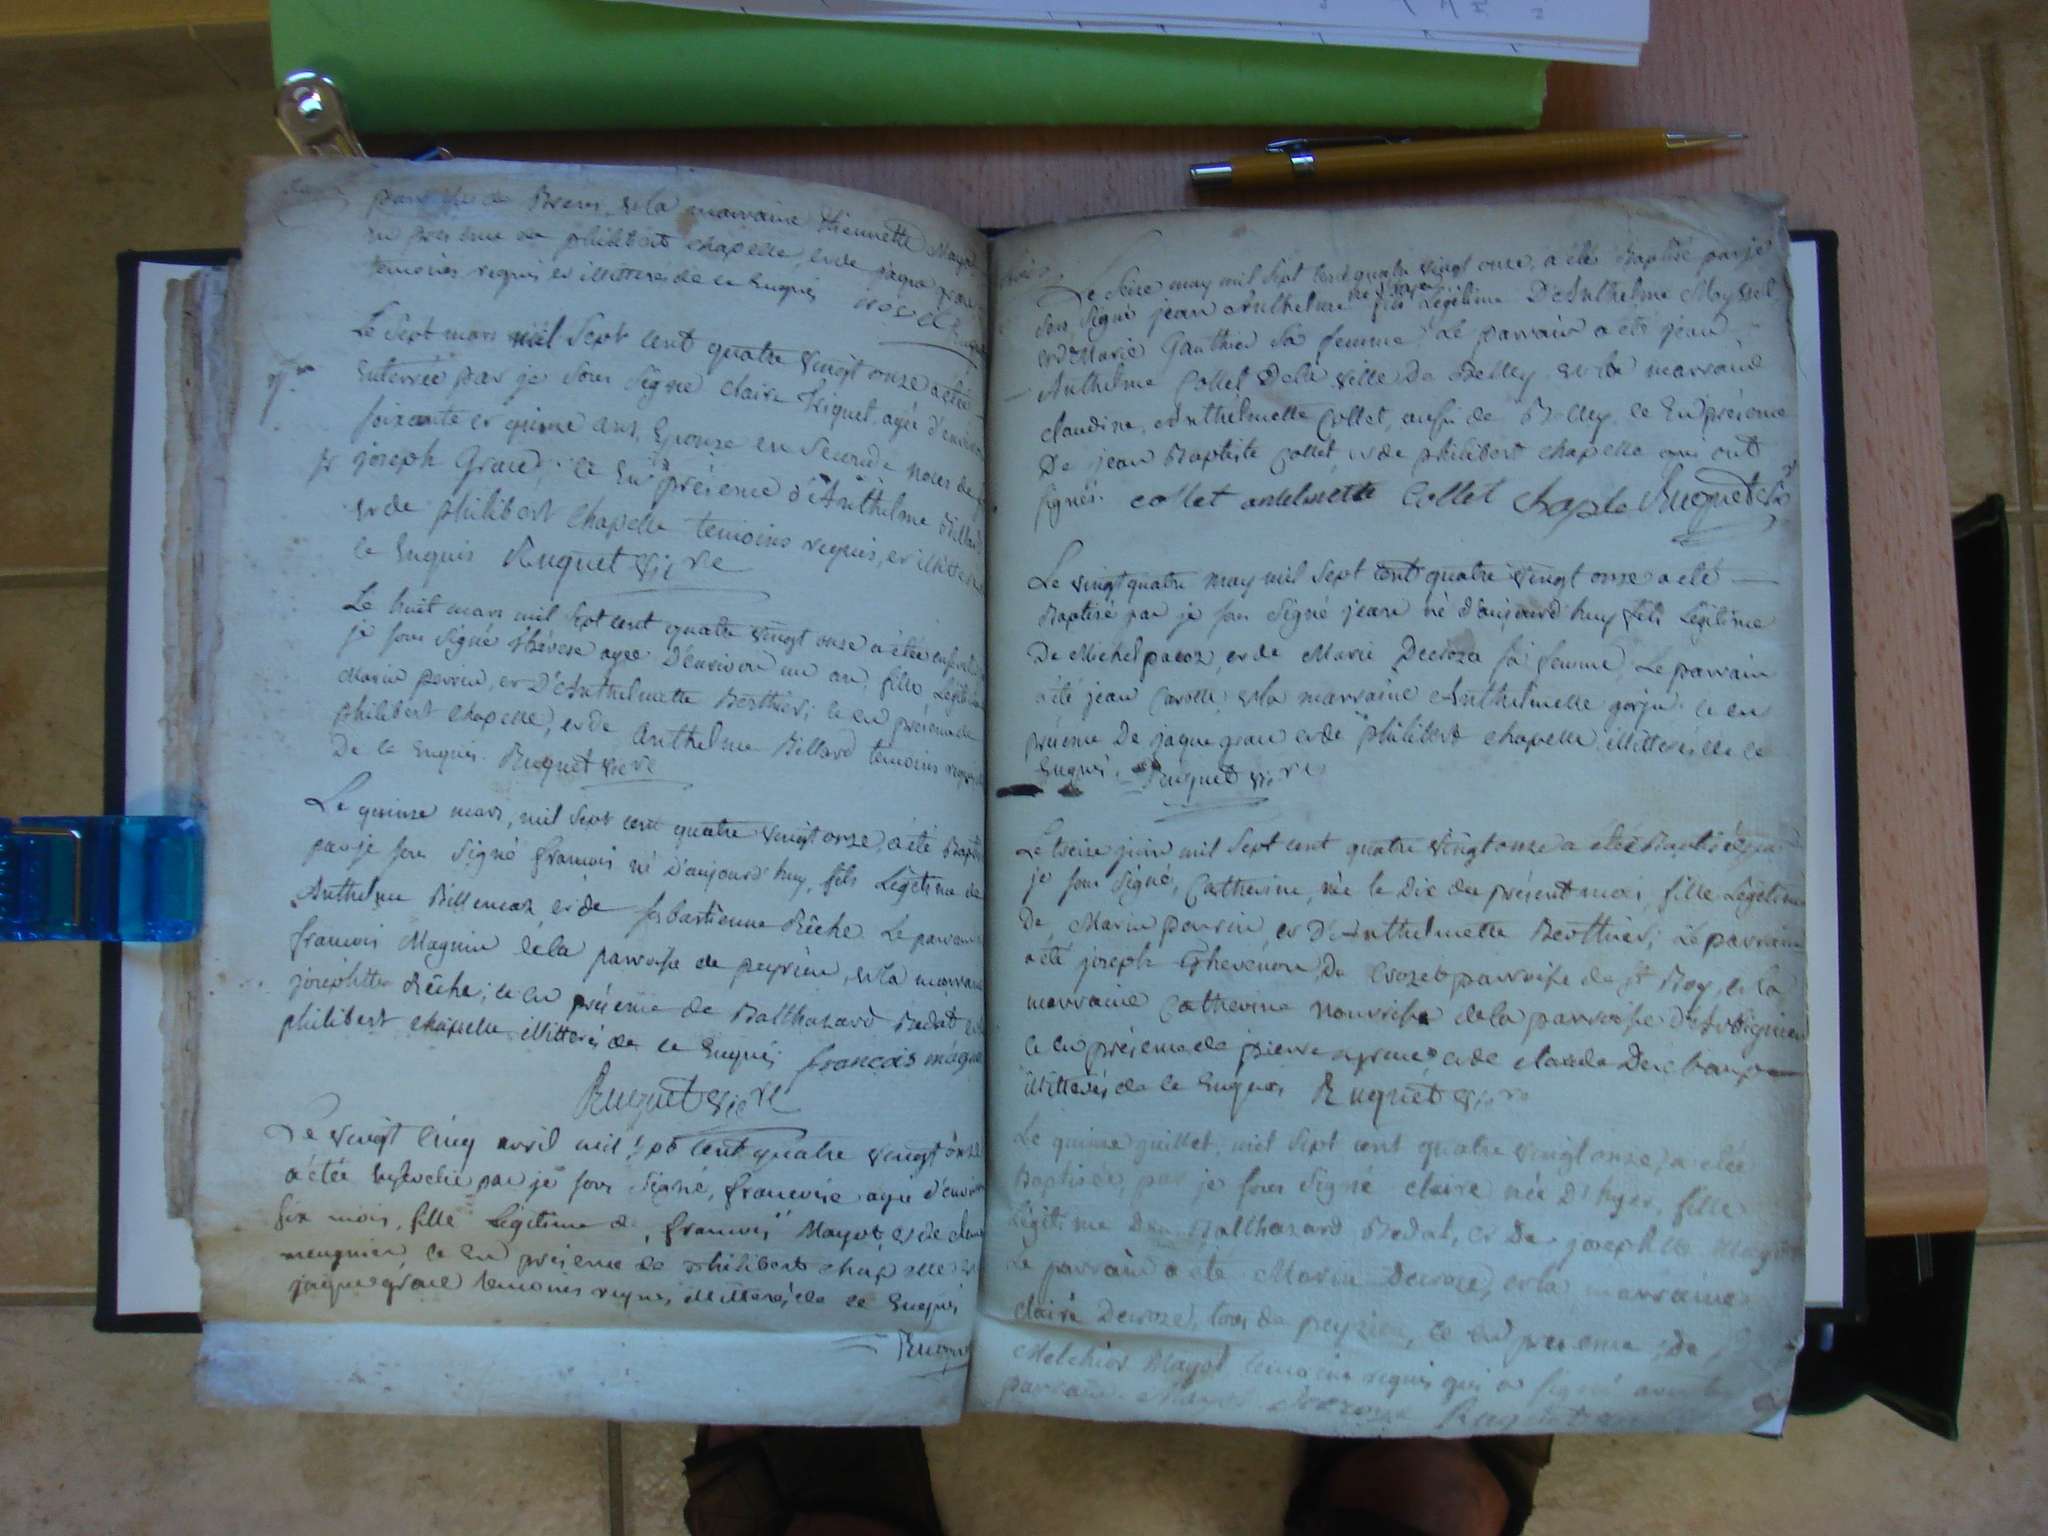 paroisse de Brens, et la marraine thiennette Mayot
en presence de philibert chapelle, et de jaque grau
temoins requis et illitteres de ce Enquis
Le Sept mars mil Sept cent quatre vingt onze a étée
Enterrée par je sous Signé claire agée d'environ
soixante et quinze ans, Epouse en Seconde noces de
joseph Graud; ce En présence d'Anthelme Billard
et de philibert chapelle temoins requis, et illitteres
ce Enquis Ruquet vic re
Le huit mars mil sept cent quatre vingt onze a étée
je sous Signé thérese agée D'environ un an, fille Légitime
Marin perrin, et D'Anthelmette Berthier; ce en présence de
philibert chapelle, et de Anthelme Billard temoins requis
De ce Enquis. Ruquet vic re
Le quinze mars, mil Sept cent quatre vingt onze, a été Baptisé
par je sous Signé francois né D'aujourd'huy, fils Légitime de
Anthelme Billemaz et de sebastienne Rêche Le parrain
francois Magnin de la parroisse de peyrieu, et la marraine
josephtte Rêche; ce en présence de Balthazard Bedat et
philibert chapelle illitterés de ce Enquis francois magnin
Ruquet vic re
Le vingt cinq avril mil sept cent quatre vingt onze
a étée Ensevelie par je sous Signé, francoise agée d'environ
six mois, fille Légitime de francois Mayot, et de
meugnier, ce En présence de philibert chapelle et
jaque graue temoins requis, illitterés de ce Enquis
Ruquet
Le Seize may mil Sept cent quatre vingt onze, a été Baptisé par je
sous Signé jean Anthelme fils Légitime D'Anthelme
et de Marie Gauthier sa femme, Le parrain a été jean
Anthelme Collet De la ville De Belley et la marraine
claudine Anthelmette Collet, aussi de Belley, ce En présence
De jean Baptiste Collet et de philibert chapelle qui ont
signés. Collet antelmette Collet Chaple Ruquet
Le vingt quatre may mil Sept cent quatre vingt onze a été
Baptisé par je sous Signé jean né d'aujourd'huy fils Légitime
De Michel pacoz et de Marie Decroza sa femme, Le parrain
a été jean et la marraine Anthelmette gorju ce en
présence De jaque graue et de philibert chapelle illitterés de ce
Enquis. Ruquet vic re
Le treize juin mil Sept cent quatre vingt onze a étée Baptisée par
je sous Signé, Catherine, née le Dix du présent mois, fille Légitime
De Marin perrin, et D'Anthelmette Berthier; Le parrain
a été joseph Thevenon, Du Crozet parroisse de St Boy, et la
marraine Catherine nourrisse de la parroisse d'Arbignieu
ce en présence de pierre et de claude Dechanp
illitterés de ce Enquis Ruquet vic re
Le quinze juillet, mil Sept cent quatre vingt onze, a étée
Baptisée, par je sous Signé claire née D'hyer, fille
Légitime De Balthazard Bedat, et De josephtte Magnin
Le parrain a été Marin Decroze, et la marraine
claire Decroze, tous de peyrieu, ce en présence de
Melchior Mayot temoin requis qui a signé avec le
parrain. Mayot Decroze Ruquet